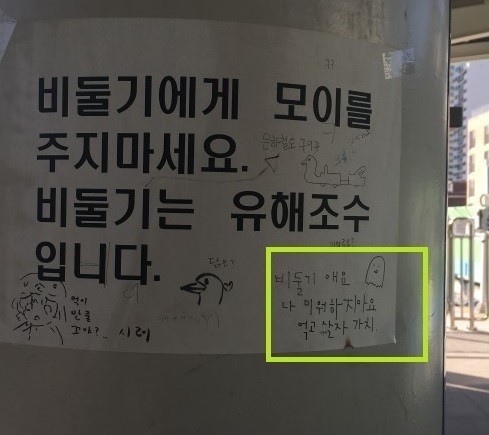 ??
비둘기에게 모이를
주지마세요.
비둘기는 유해조수
입니다.
먹이
안줄
꼬야?.. 시러
비둘기 애요
나 미워하지마요
먹고 살자 가치.